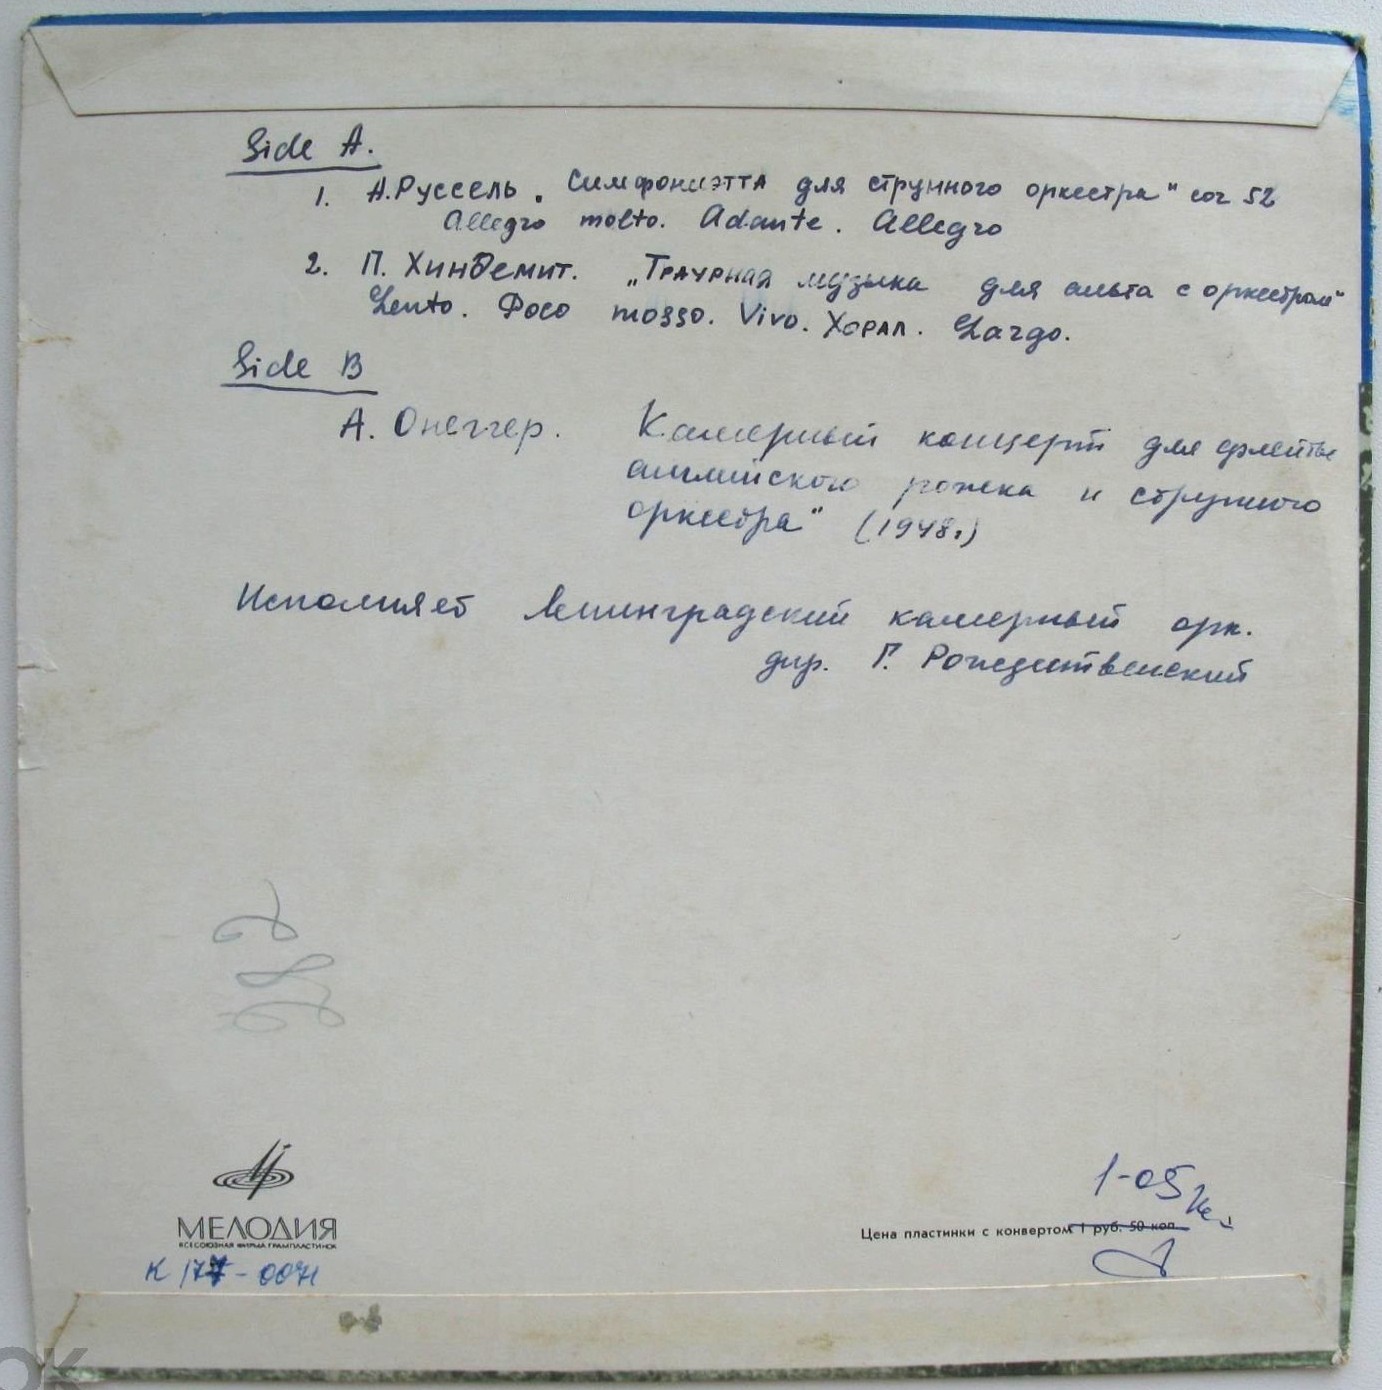 Side A.
1. А.Руссель. Симфониэтта для струнного оркестра" соч 52
Allegro molto. Adante. Allegro
2. П. Хиндемит. „Траурная музыка для альта с оркестром"
Lento. Poco mosso. Vivo. Хорал. Largo.
Side B
А. Онеггер. Камерный концерт для флейты
английского рожка и струнного
оркестра" (1948г)
Исполняет Ленинградский камерный орк.
дир. Г. Рождественский
МЕЛОДИЯ
ВСЕСОЮЗНАЯ ФИРМА ГРАМПЛАСТИНОК
К 177-0071
1-05
Цена пластинки с конвертом 1 руб. 50 коп.